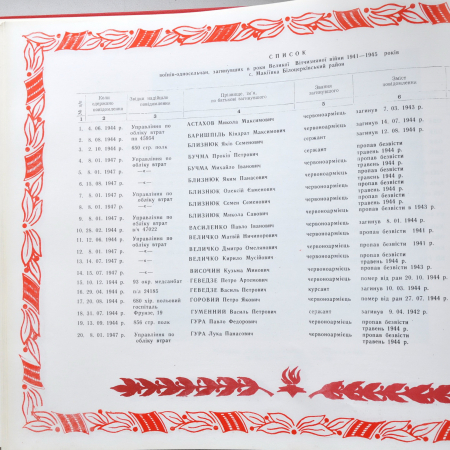 СПИСОК
воїнів-односельчан, загинувших в роки Великої Вітчизняної війни 1941—1945 років
с. Макіївка Білоцерківський район
№ п/п Коли одержано повідомлення Звідки надійшло повідомлення Прізвище, ім'я, по батькові загинувшого Звання загинувшого Зміст повідомлення
1 2 3 4 5 6
1. 6. 06. 1944 р. Управління по обліку втрат АСТАХОВ Микола Максимович червоноармієць загинув 7. 03. 1943 р.
2. 8. 09. 1944 р. пп 45034 БАРИШПІЛЬ Кіндрат Максимович червоноармієць загинув 14. 07. 1944 р.
3. 2. 10. 1944 р. 650 стр. полк БЛИЗНЮК Яків Семенович сержант загинув 12. 08. 1944 р.
4. 8. 01. 1947 р. Управління по обліку втрат БУЧМА Прокіп Петрович червоноармієць пропав безвісти травень 1944 р.
5. 8. 01. 1947 р. —«— БУЧМА Михайло Іванович червоноармієць пропав безвісти травень 1944 р.
6. 15. 08. 1947 р. —«— БЛИЗНЮК Яким Панасович червоноармієць пропав безвісти травень 1944 р.
7. 8. 01. 1947 р. Управління по обліку втрат БЛИЗНЮК Олексій Євменович червоноармієць пропав безвісти травень 1944 р.
8. 8. 01. 1947 р. —«— БЛИЗНЮК Семен Семенович червоноармієць пропав безвісти травень 1944 р.
9. 8. 01. 1947 р. Управління по обліку втрат БЛИЗНЮК Микола Савович червоноармієць пропав безвісти в 1943 р.
10. 16. 02. 1944 р. в/ч 47022 ВАСИЛЕНКО Павло Іванович червоноармієць загинув 8. 01. 1944 р.
11. 12. 08. 1946 р. Управління по обліку втрат ВЕЛИЧКО Матвій Ничипорович червоноармієць пропав безвісти 1941 р.
12. 8. 01. 1947 р. —«— ВЕЛИЧКО Дмитро Омелянович червоноармієць пропав безвісти 1941 р.
13. 14. 07. 1947 р. —«— ВЕЛИЧКО Кирило Мусійович червоноармієць пропав безвісти травень 1944 р.
14. 12. 07. 1947 р. —«— ВИСОЧИН Кузьма Минович червоноармієць пропав безвісти 1943 р.
15. 10. 12. 1944 р. 93 окр. медсанбат ГЕВЕДЗЕ Петро Артемович червоноармієць помер від ран 20. 10. 1944 р.
16. 29. 04. 1944 р. п/п 24183 ГЕВЕДЗЕ Василь Петрович курсант загинув 10. 03. 1944 р.
17. 20. 09. 1944 р. 660 хір. польовий госпіталь ГОРОВИЙ Петро Якович червоноармієць помер від ран 27. 07. 1944 р.
18. 31. 07. 1944 р. Фрунзе, 19 ГУМЕННИЙ Василь Петрович сержант загинув 9. 04. 1942 р.
19. 12. 09. 1944 р. 858 стр. полк ГУРА Павло Федорович червоноармієць пропав безвісти травень 1944 р.
20. 8. 01. 1947 р. Управління по обліку втрат ГУРА Лука Панасович червоноармієць пропав безвісти травень 1944 р.